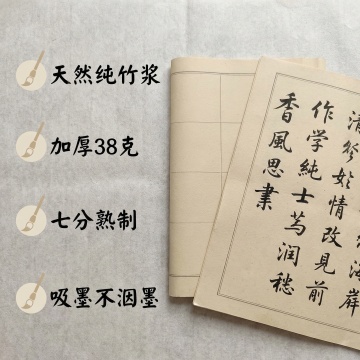 天然纯竹浆
加厚38克
七分熟制
吸墨不洇墨
海岸
清情改見前
作学純士為润穗
香風思業